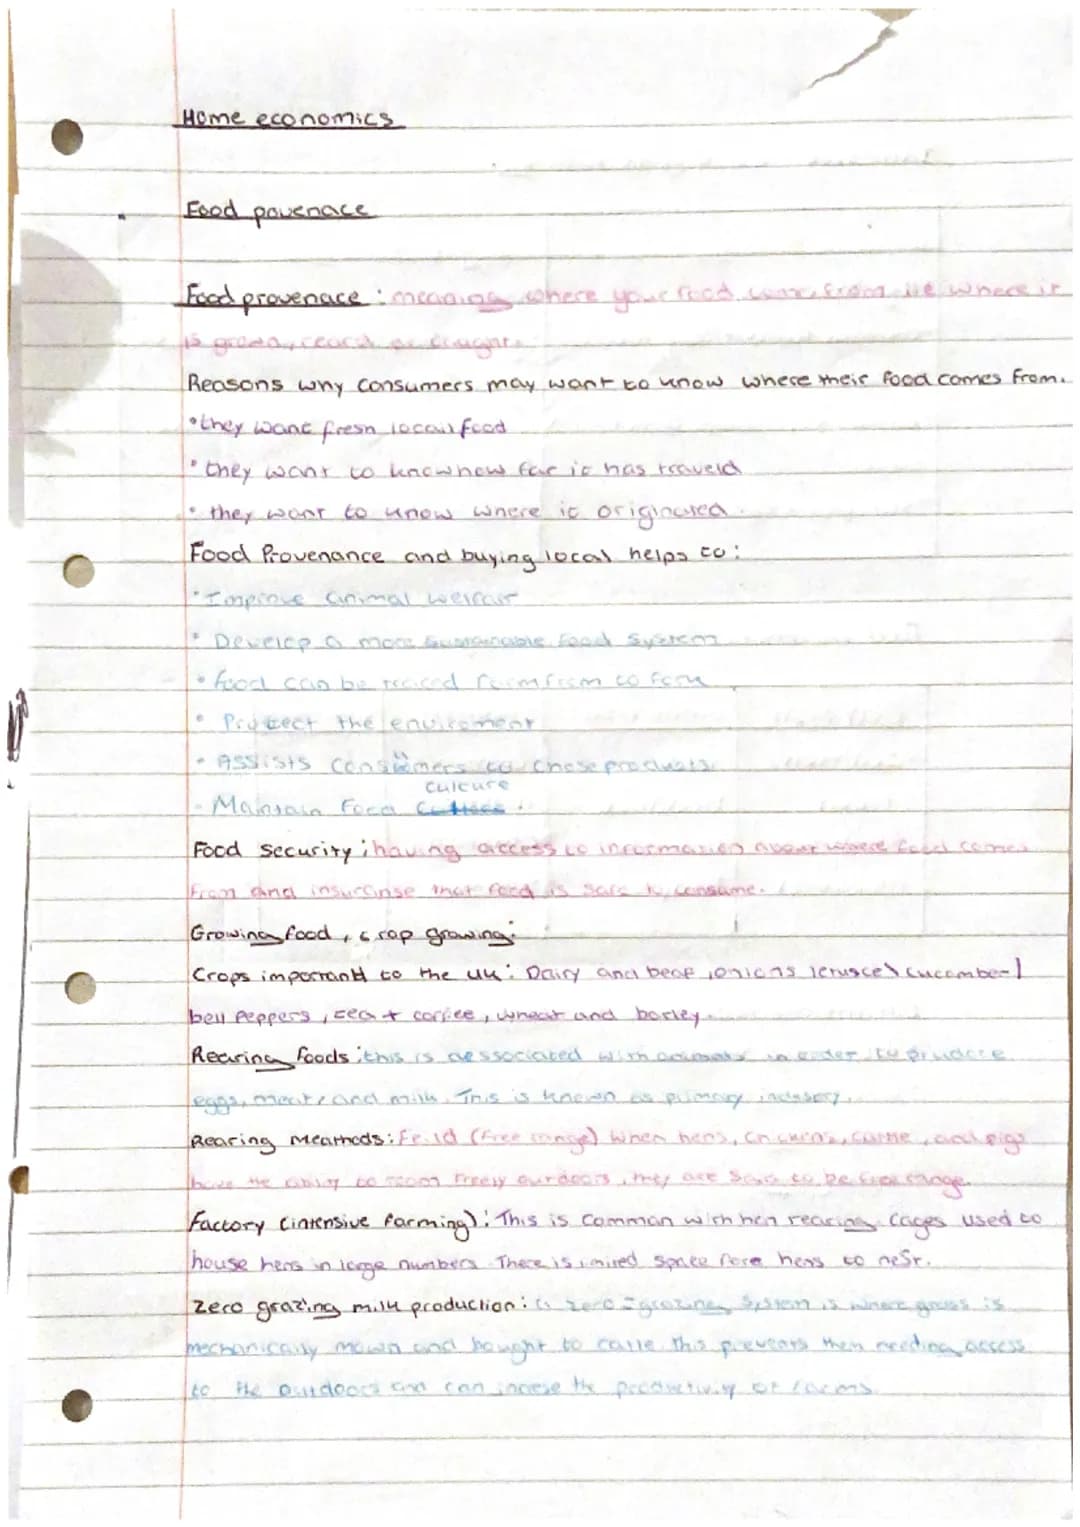 Home economics
Food povenace
Food provenace : meaning where your food come from i.e where it
is grown, reard or caught.
Reasons why consumers may want to know where their food comes from.
• they want fresh local food
• they want to know how far it has traveld
• they want to know where it originated.
Food Provenance and buying local helps to:
• Improve animal welfair
• Develop a more sustainable food system
• food can be traced farm to fork
• Protect the enviroment
• Assists consumers to chose products.
culture
- Maintain Food
Food security: having access to information about where food comes
from and that food is safe to consume.
Growing food, crop growing:
Crops important to the UK: Dairy and beaf, onions \ cucumber \
bell peppers, tea + coffee, wheat and barley.
Rearing foods: this is aessociated with animals in order to produce
eggs, meat, and milk. This is known as primary industry.
Rearing Mearhods: Feild (free range) When hens, chickens, cattle, and pigs
have the ability to roam freely ourdoors, they are said to be free range.
Factory (intensive farming): This is common with hen rearing. Cages used to
house hens in large numbers. There is limired space hens to nest.
Zero grazing milk production: a zero-grazing system is where grass is
mechanically mown and bought to cattle. This prevents them needing access
to the outdoors and can increse the productivity of farms.